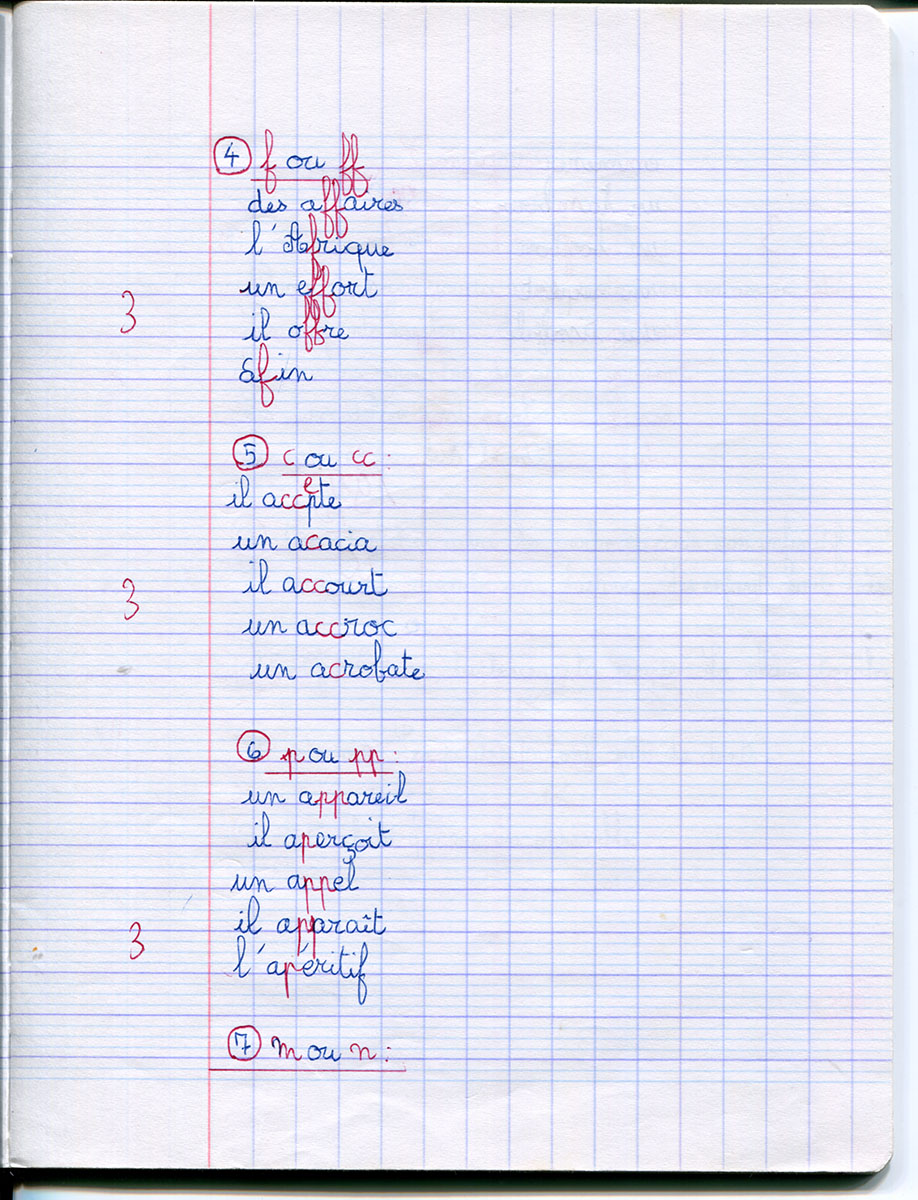 4 f ou ff
des affaires
l'Afrique
un effort
3
il offre
afin
5 c ou cc :
il accepte
un acacia
il accourt
3
un accroc
un acrobate
6 p ou pp :
un appareil
il aperçoit
un appel
il apparaît
3
l'apéritif
7 m ou n :